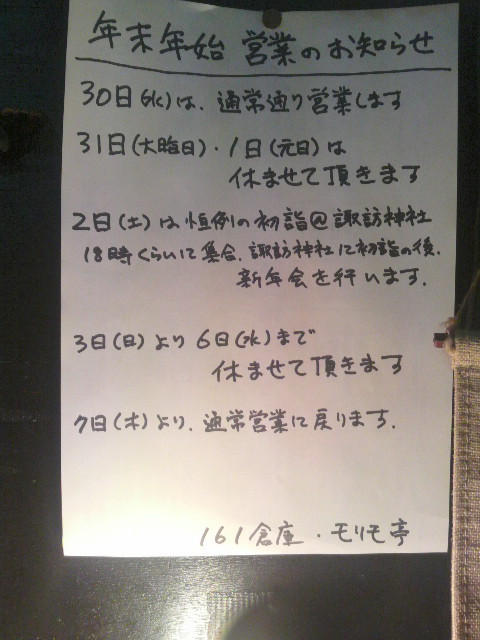 年末年始 営業のお知らせ
30日(水)は、通常通り営業します
31日(大晦日)・1日(元日)は
休ませて頂きます
2日(土)は恒例の初詣@諏訪神社
18時くらいに集合、諏訪神社に初詣の後、
新年会を行います.
3日(日)より6日(水)まで
休ませて頂きます
7日(木)より、通常営業に戻ります.
161倉庫・モリモ亭